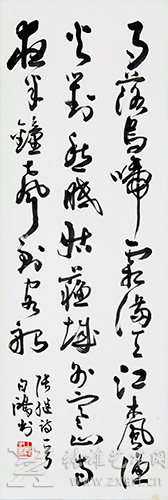 月落烏啼霜滿天江楓漁
火對愁眠姑蘇城外寒山寺
夜半鐘聲到客船
張繼詩一首
白鴻书